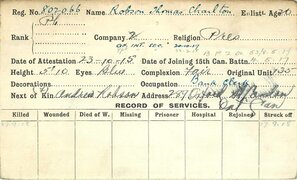 Reg. No. 802066 Name Robson Thomas Charlton Enlist. Age 20
Pte
Rank Company W Religion Pres
Date of Attestation 23-10-15 Date of Joining 15th Can. Battn. 4-5-17
Height 5' 10 Eyes Blue Complexion Fair Original Unit 135
Decorations Occupation Bank Clerk
Next of Kin Andrew Robson Address 257 Oxford St London
Ont Can
RECORD OF SERVICES.
Killed Wounded Died of W. Missing Prisoner Hospital Rejoined Struck off